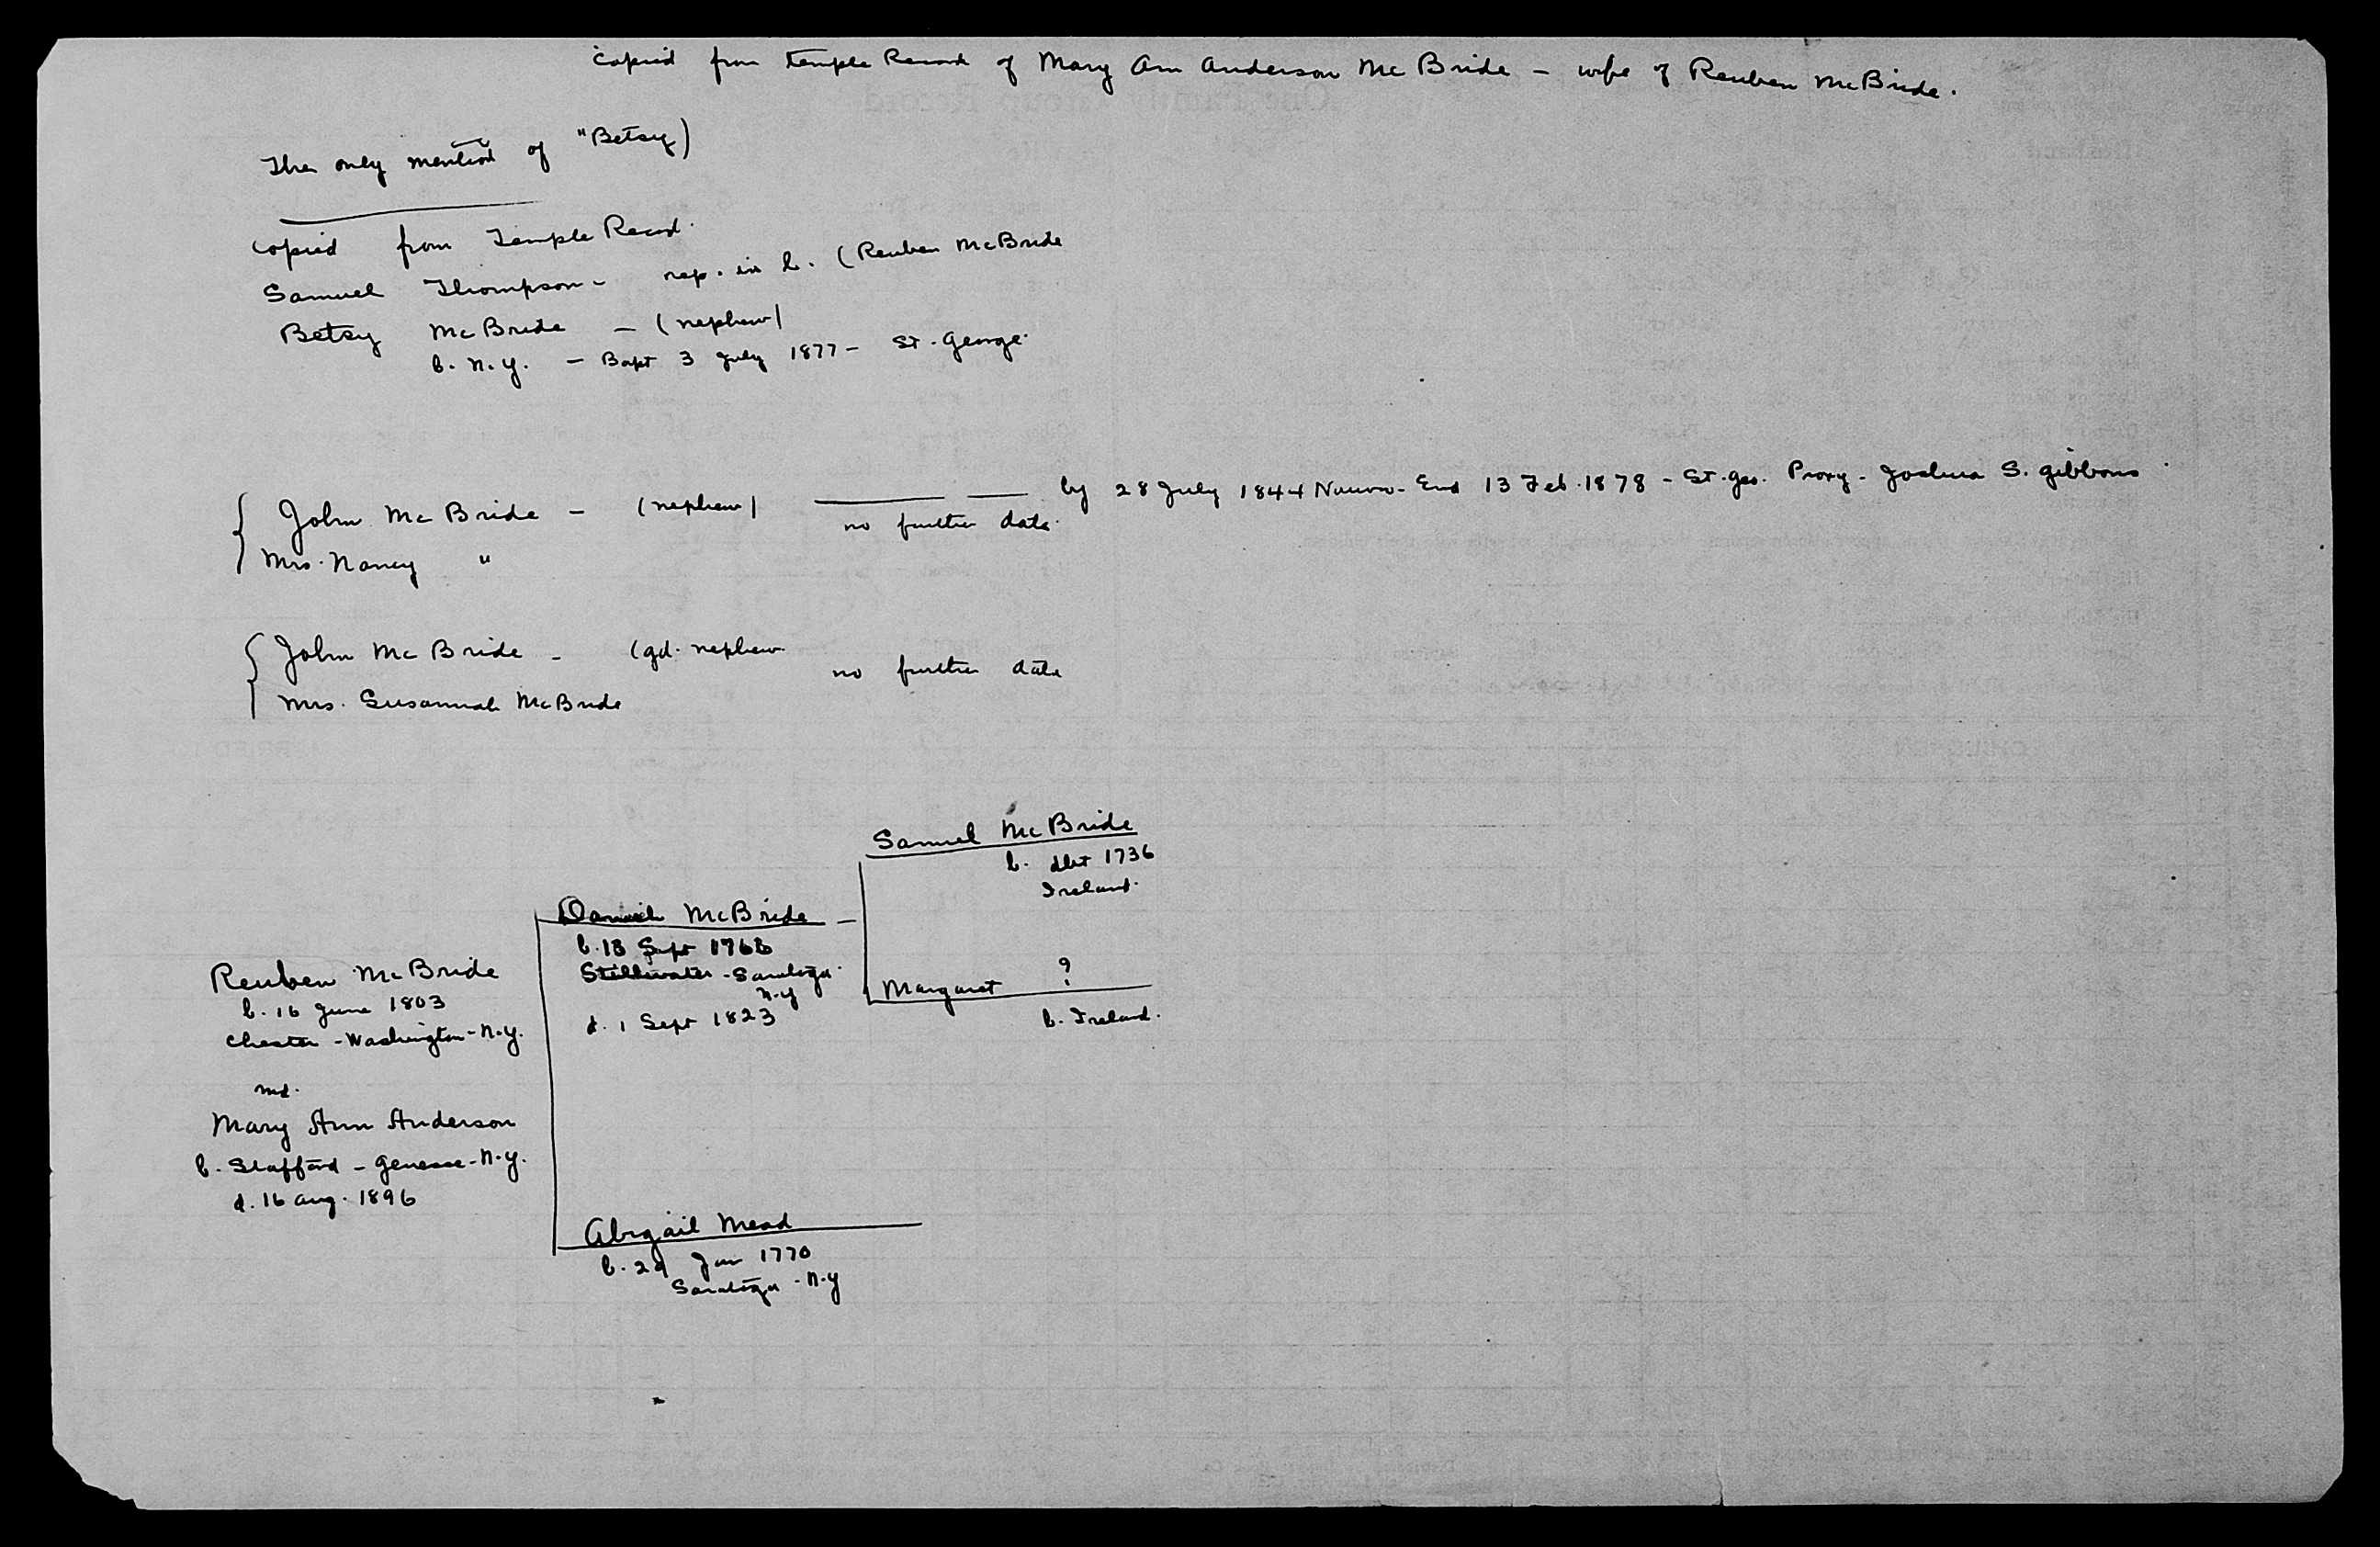 Copied from temple Record of Mary Ann Anderson McBride – wife of Reuben McBride.
The only mention of "Betsy)
Copied from Temple Record.
Samuel Thompson – nep. in l. (Reuben McBride
Betsy McBride – (nephew)
b. N.Y. – Bapt 3 July 1877 – St. George.
John McBride – (nephew) by 28 July 1844 Nauvoo – End 13 Feb. 1878 – St. Geo. Proxy – Joshua S. Gibbons
no further data.
Mrs. Nancy "
John McBride – (gd. nephew
no further data
Mrs. Susannah McBride
Samuel McBride
b. abt 1736
Ireland.
Daniel McBride –
b. 13 Sept 1766
Stillwater – Saratoga.
N.Y
d. 1 Sept 1823
Margaret ?
b. Ireland.
Reuben McBride
b. 16 June 1803
Chester – Washington – N.Y.
md.
Mary Ann Anderson
b. Stafford – Genesee – N.Y.
d. 16 Aug. 1896
Abigail Mead
b. 29 Jan 1770
Saratoga – N.Y
One Family Group Record